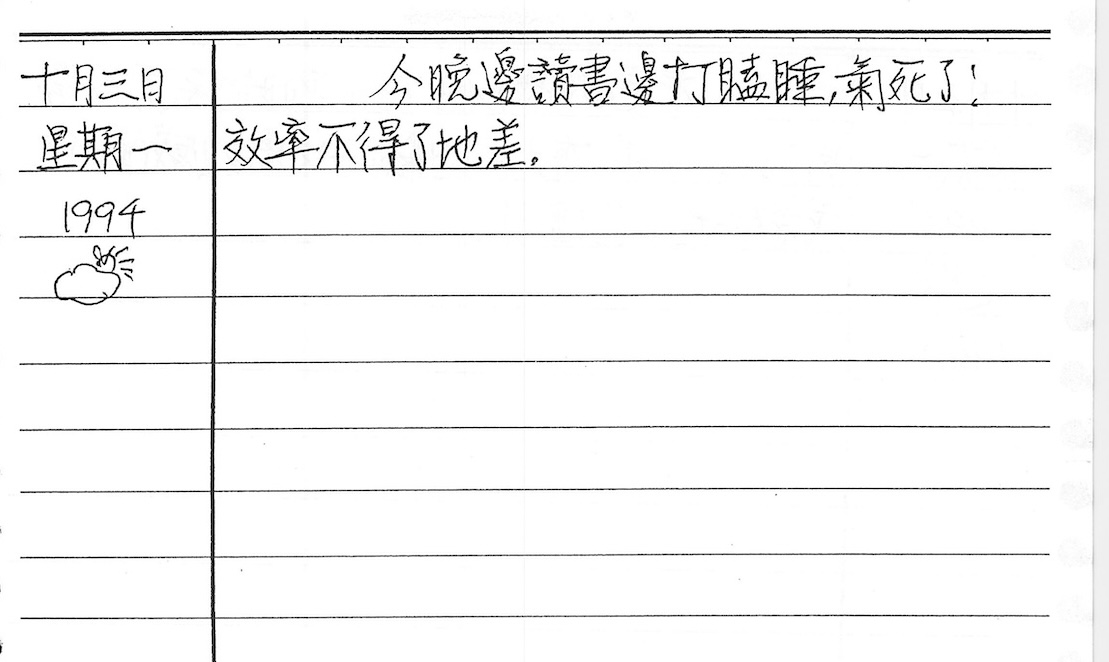 十月三日
星期一
1994
今晚邊讀書邊打瞌睡,氣死了!
效率不得了地差。